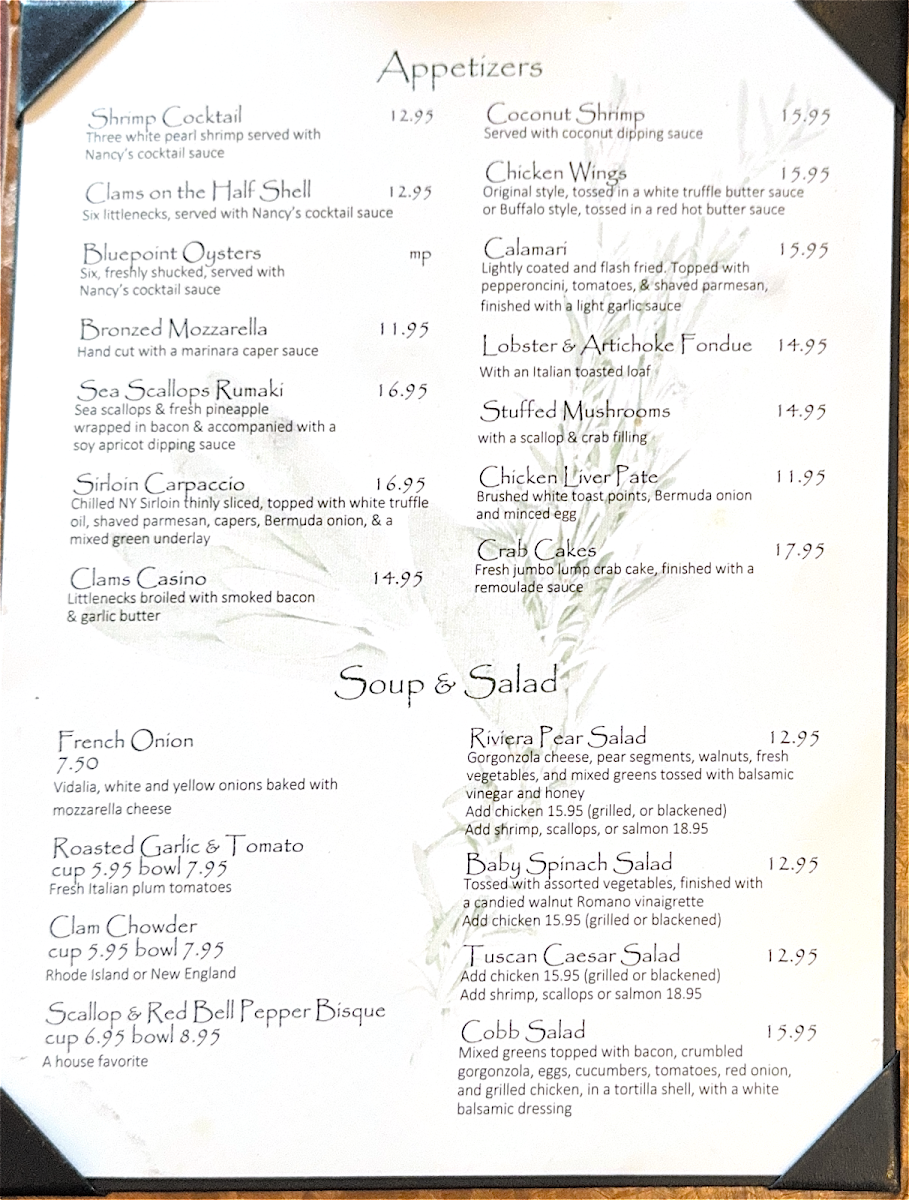 Appetizers
Shrimp Cocktail 12.95
Three white pearl shrimp served with
Nancy's cocktail sauce
Clams on the Half Shell 12.95
Six littlenecks, served with Nancy's cocktail sauce
Bluepoint Oysters mp
Six, freshly shucked, served with
Nancy's cocktail sauce
Bronzed Mozzarella 11.95
Hand cut with a marinara caper sauce
Sea Scallops Rumaki 16.95
Sea scallops & fresh pineapple
wrapped in bacon & accompanied with a
soy apricot dipping sauce
Sirloin Carpaccio 16.95
Chilled NY Sirloin thinly sliced, topped with white truffle
oil, shaved parmesan, capers, Bermuda onion, & a
mixed green underlay
Clams Casino 14.95
Littlenecks broiled with smoked bacon
& garlic butter
Coconut Shrimp 15.95
Served with coconut dipping sauce
Chicken Wings 15.95
Original style, tossed in a white truffle butter sauce
or Buffalo style, tossed in a red hot butter sauce
Calamari 15.95
Lightly coated and flash fried. Topped with
pepperoncini, tomatoes, & shaved parmesan,
finished with a light garlic sauce
Lobster & Artichoke Fondue 14.95
With an Italian toasted loaf
Stuffed Mushrooms 14.95
with a scallop & crab filling
Chicken Liver Pate 11.95
Brushed white toast points, Bermuda onion
and minced egg
Crab Cakes 17.95
Fresh jumbo lump crab cake, finished with a
remoulade sauce
Soup & Salad
French Onion
7.50
Vidalia, white and yellow onions baked with
mozzarella cheese
Roasted Garlic & Tomato
cup 5.95 bowl 7.95
Fresh Italian plum tomatoes
Clam Chowder
cup 5.95 bowl 7.95
Rhode Island or New England
Scallop & Red Bell Pepper Bisque
cup 6.95 bowl 8.95
A house favorite
Riviera Pear Salad 12.95
Gorgonzola cheese, pear segments, walnuts, fresh
vegetables, and mixed greens tossed with balsamic
vinegar and honey
Add chicken 15.95 (grilled, or blackened)
Add shrimp, scallops, or salmon 18.95
Baby Spinach Salad 12.95
Tossed with assorted vegetables, finished with
a candied walnut Romano vinaigrette
Add chicken 15.95 (grilled or blackened)
Tuscan Caesar Salad 12.95
Add chicken 15.95 (grilled or blackened)
Add shrimp, scallops or salmon 18.95
Cobb Salad 15.95
Mixed greens topped with bacon, crumbled
gorgonzola, eggs, cucumbers, tomatoes, red onion,
and grilled chicken, in a tortilla shell, with a white
balsamic dressing